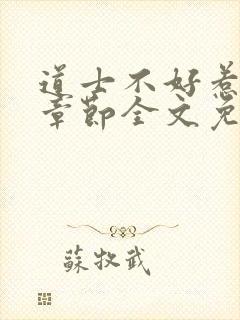 道士不好惹
章節全文免
蘇牧武